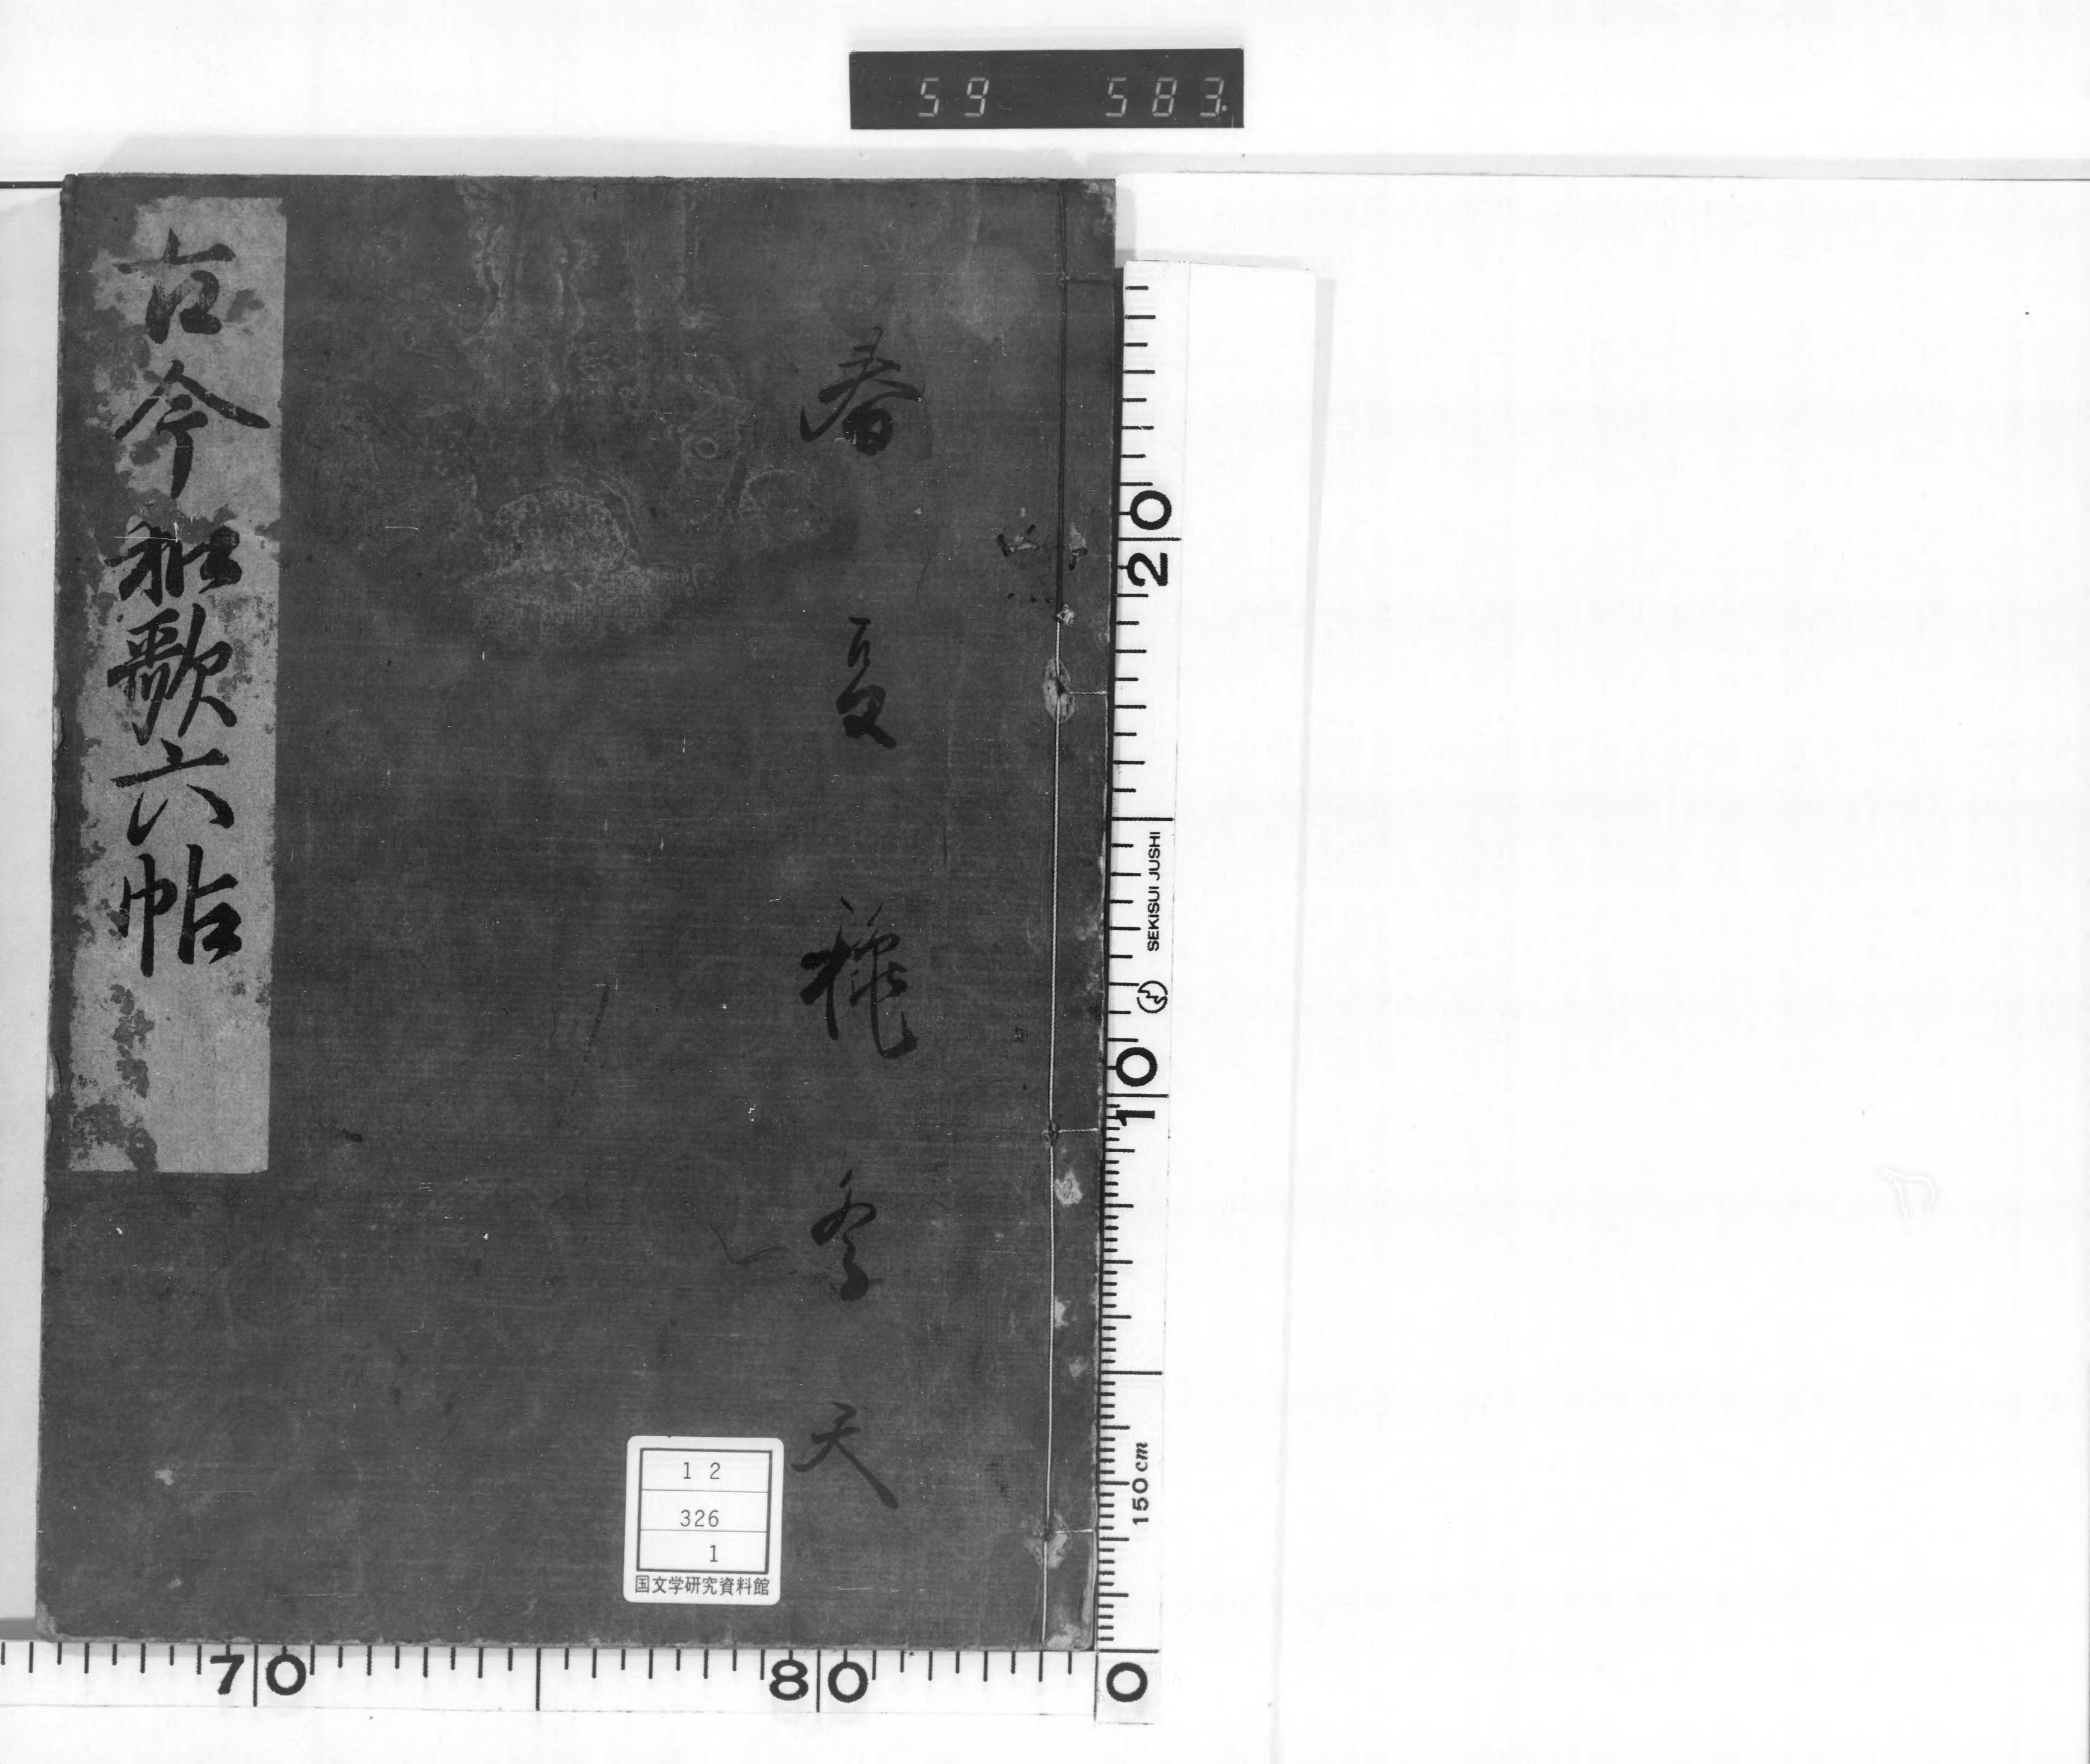 59 583.
春 夏 龝 冬 天
古今和歌六帖
12
326
1
国文学研究資料館
20
SEKISUI JUSHI
10
150cm
70 80 0